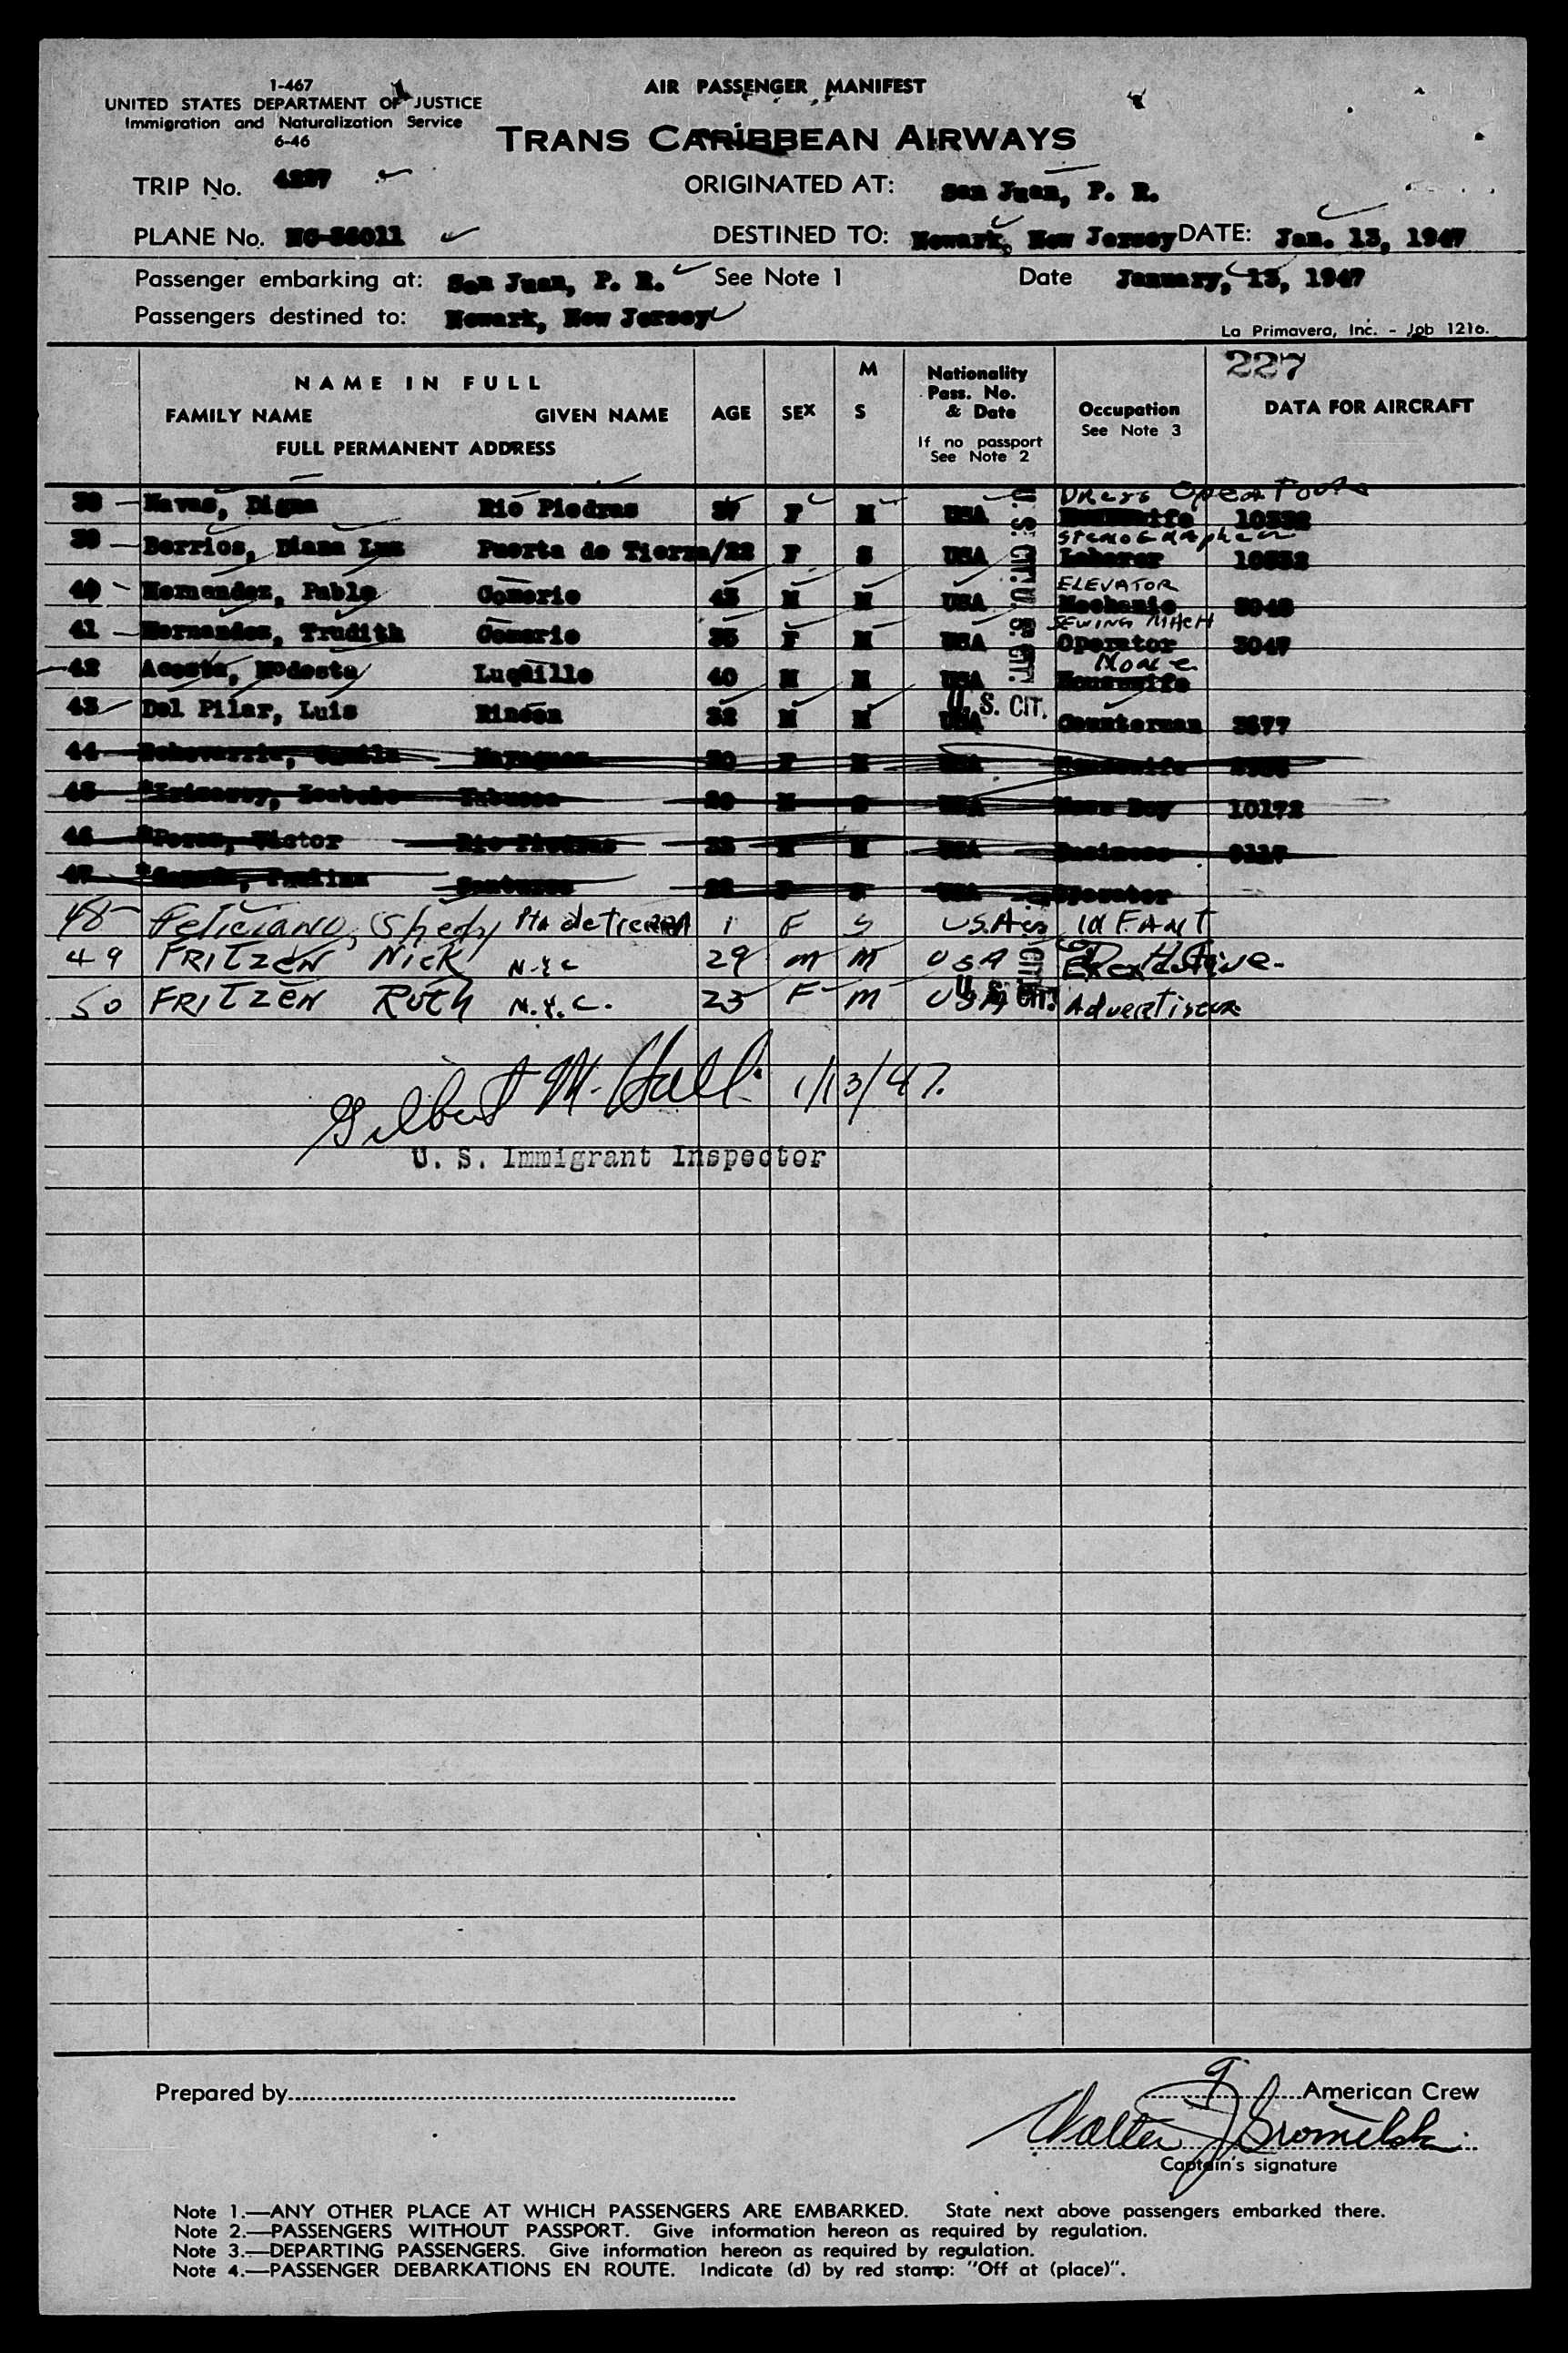 1-467
UNITED STATES DEPARTMENT OF JUSTICE
Immigration and Naturalization Service
6-46
AIR PASSENGER MANIFEST
TRANS CARIBBEAN AIRWAYS
TRIP No. ORIGINATED AT: San Juan, P. R.
PLANE No. NC-56011 DESTINED TO: Newark, New Jersey DATE: Jan. 13, 1947
Passenger embarking at: San Juan, P. R. See Note 1 Date January, 13, 1947
Passengers destined to: Newark, New Jersey
La Primavera, Inc. - Job 1216.
227
NAME IN FULL
FAMILY NAME GIVEN NAME
FULL PERMANENT ADDRESS
AGE SEX M S
Nationality Pass. No. & Date
If no passport See Note 2
Occupation See Note 3
DATA FOR AIRCRAFT
Dress Operator
38 Navas, Digna Rio Piedras 37 F M USA Housewife 10332
Stenographer
39 Berrios, Diana Luz Puerta de Tierra/22 F S USA Laborer
ELEVATOR
40 Hernandez, Pablo Comerio 43 M M USA Mechanic
SEWING MACH
41 Hernandez, Trudith Comerio 35 F M USA Operator 3047
None
42 Acosta, Modesta Luquillo 40 M M USA Housewife
43 Del Pilar, Luis Rincon 32 M M USA Counterman 3677
U. S. CIT. U. S. CIT.
U. S. CIT.
44 Mayaguez F M USA Housewife
45 Yabucoa M S USA 10172
46 Perez, Victor Rio Piedras M M USA Business
47 Santurce F S USA Operator
48 Feliciano, Pta de Tierra 1 F S USA INFANT
49 FRITZEN NICK N.Y.C 29 M M USA Executive
50 FRITZEN RUTH N.Y.C. 23 F M USA Advertiser
U. S. CIT.
Gilbert M. Hall 1/13/47.
U. S. Immigrant Inspector
Prepared by
9 American Crew
Walter J
Captain's signature
Note 1.—ANY OTHER PLACE AT WHICH PASSENGERS ARE EMBARKED. State next above passengers embarked there.
Note 2.—PASSENGERS WITHOUT PASSPORT. Give information hereon as required by regulation.
Note 3.—DEPARTING PASSENGERS. Give information hereon as required by regulation.
Note 4.—PASSENGER DEBARKATIONS EN ROUTE. Indicate (d) by red stamp: "Off at (place)".